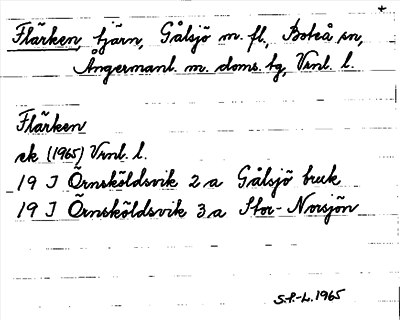 *
Flärken, tjärn, Gålsjö m. fl., Boteå sn,
Ångermanl. m. doms. tg, Vrnl. l.
Flärken
ek (1965) Vrnl. l.
19 J Örnsköldsvik 2 a Gålsjö bruk
19 J Örnsköldsvik 3 a Stor-Norsjön
S.P.-L. 1965